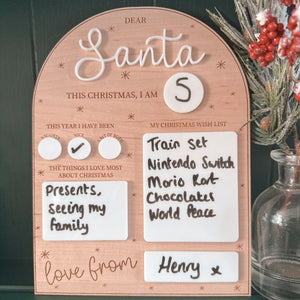 DEAR
Santa
THIS CHRISTMAS, I AM 5
THIS YEAR I HAVE BEEN
✓
THE THINGS I LOVE MOST
ABOUT CHRISTMAS
Presents,
seeing my
family
MY CHRISTMAS WISH LIST
Train Set
Nintendo Switch
Mario Kart
Chocolates
World Peace
love from
Henry x